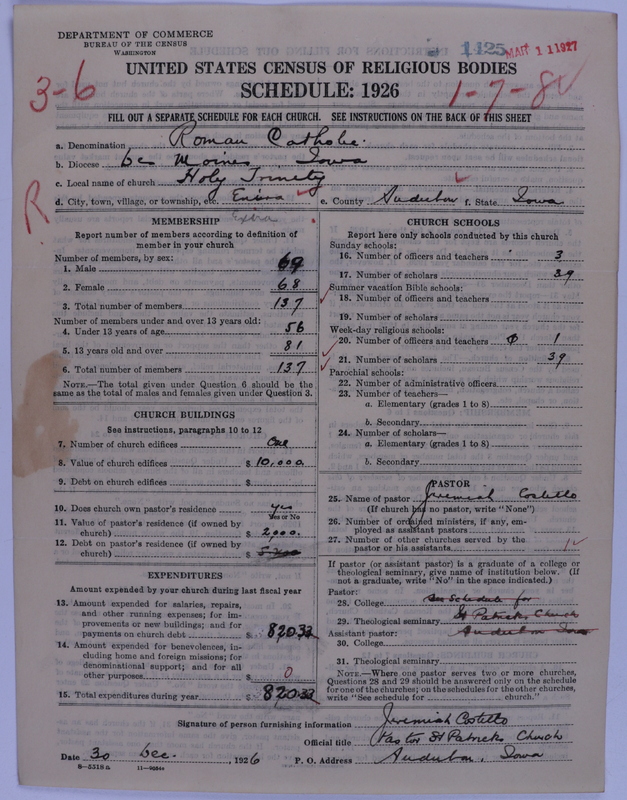 DEPARTMENT OF COMMERCE
BUREAU OF THE CENSUS
WASHINGTON
1125 MAR 11 1927
UNITED STATES CENSUS OF RELIGIOUS BODIES
SCHEDULE: 1926
3-6
1-7-8
FILL OUT A SEPARATE SCHEDULE FOR EACH CHURCH. SEE INSTRUCTIONS ON THE BACK OF THIS SHEET
a. Denomination Roman Catholic.
b. Diocese Des Moines Iowa
c. Local name of church Holy Trinity
d. City, town, village, or township, etc. Exira e. County Audubon f. State Iowa
Exira
R
MEMBERSHIP
Report number of members according to definition of
member in your church
Number of members, by sex:
1. Male 69
2. Female 68
3. Total number of members 137
Number of members under and over 13 years old:
4. Under 13 years of age 56
5. 13 years old and over 81
6. Total number of members 137
NOTE.—The total given under Question 6 should be the
same as the total of males and females given under Question 3.
CHURCH BUILDINGS
See instructions, paragraphs 10 to 12
7. Number of church edifices One
8. Value of church edifices $10,000.
9. Debt on church edifices $
10. Does church own pastor's residence yes
Yes or No
11. Value of pastor's residence (if owned by
church) $2000.
12. Debt on pastor's residence (if owned by
church) $
EXPENDITURES
Amount expended by your church during last fiscal year
13. Amount expended for salaries, repairs,
and other running expenses; for im-
provements or new buildings; and for
payments on church debt $820.33
14. Amount expended for benevolences, in-
cluding home and foreign missions; for
denominational support; and for all
other purposes $0
15. Total expenditures during year $820.33
CHURCH SCHOOLS
Report here only schools conducted by this church
Sunday schools:
16. Number of officers and teachers 3
17. Number of scholars 39
Summer vacation Bible schools:
18. Number of officers and teachers
19. Number of scholars
Week-day religious schools:
20. Number of officers and teachers 1
21. Number of scholars 39
Parochial schools:
22. Number of administrative officers
23. Number of teachers—
a. Elementary (grades 1 to 8)
b. Secondary
24. Number of scholars—
a. Elementary (grades 1 to 8)
b. Secondary
PASTOR
25. Name of pastor Jeremiah Costello
(If church has no pastor, write "None")
26. Number of ordained ministers, if any, em-
ployed as assistant pastors
27. Number of other churches served by the
pastor or his assistants 1
If pastor (or assistant pastor) is a graduate of a college or
theological seminary, give name of institution below. (If
not a graduate, write "No" in the space indicated.)
Pastor:
28. College See Schedule for
29. Theological seminary St Patricks Church
Assistant pastor: Audubon Iowa
30. College
31. Theological seminary
NOTE.—Where one pastor serves two or more churches,
Questions 28 and 29 should be answered only on the schedule
for one of the churches; on the schedules for the other churches,
write "See schedule for church."
Signature of person furnishing information Jeremiah Costello
Official title Pastor St Patricks Church
Date 30 Dec. , 1926 P. O. Address Audubon, Iowa
8—5518 a 11—9664